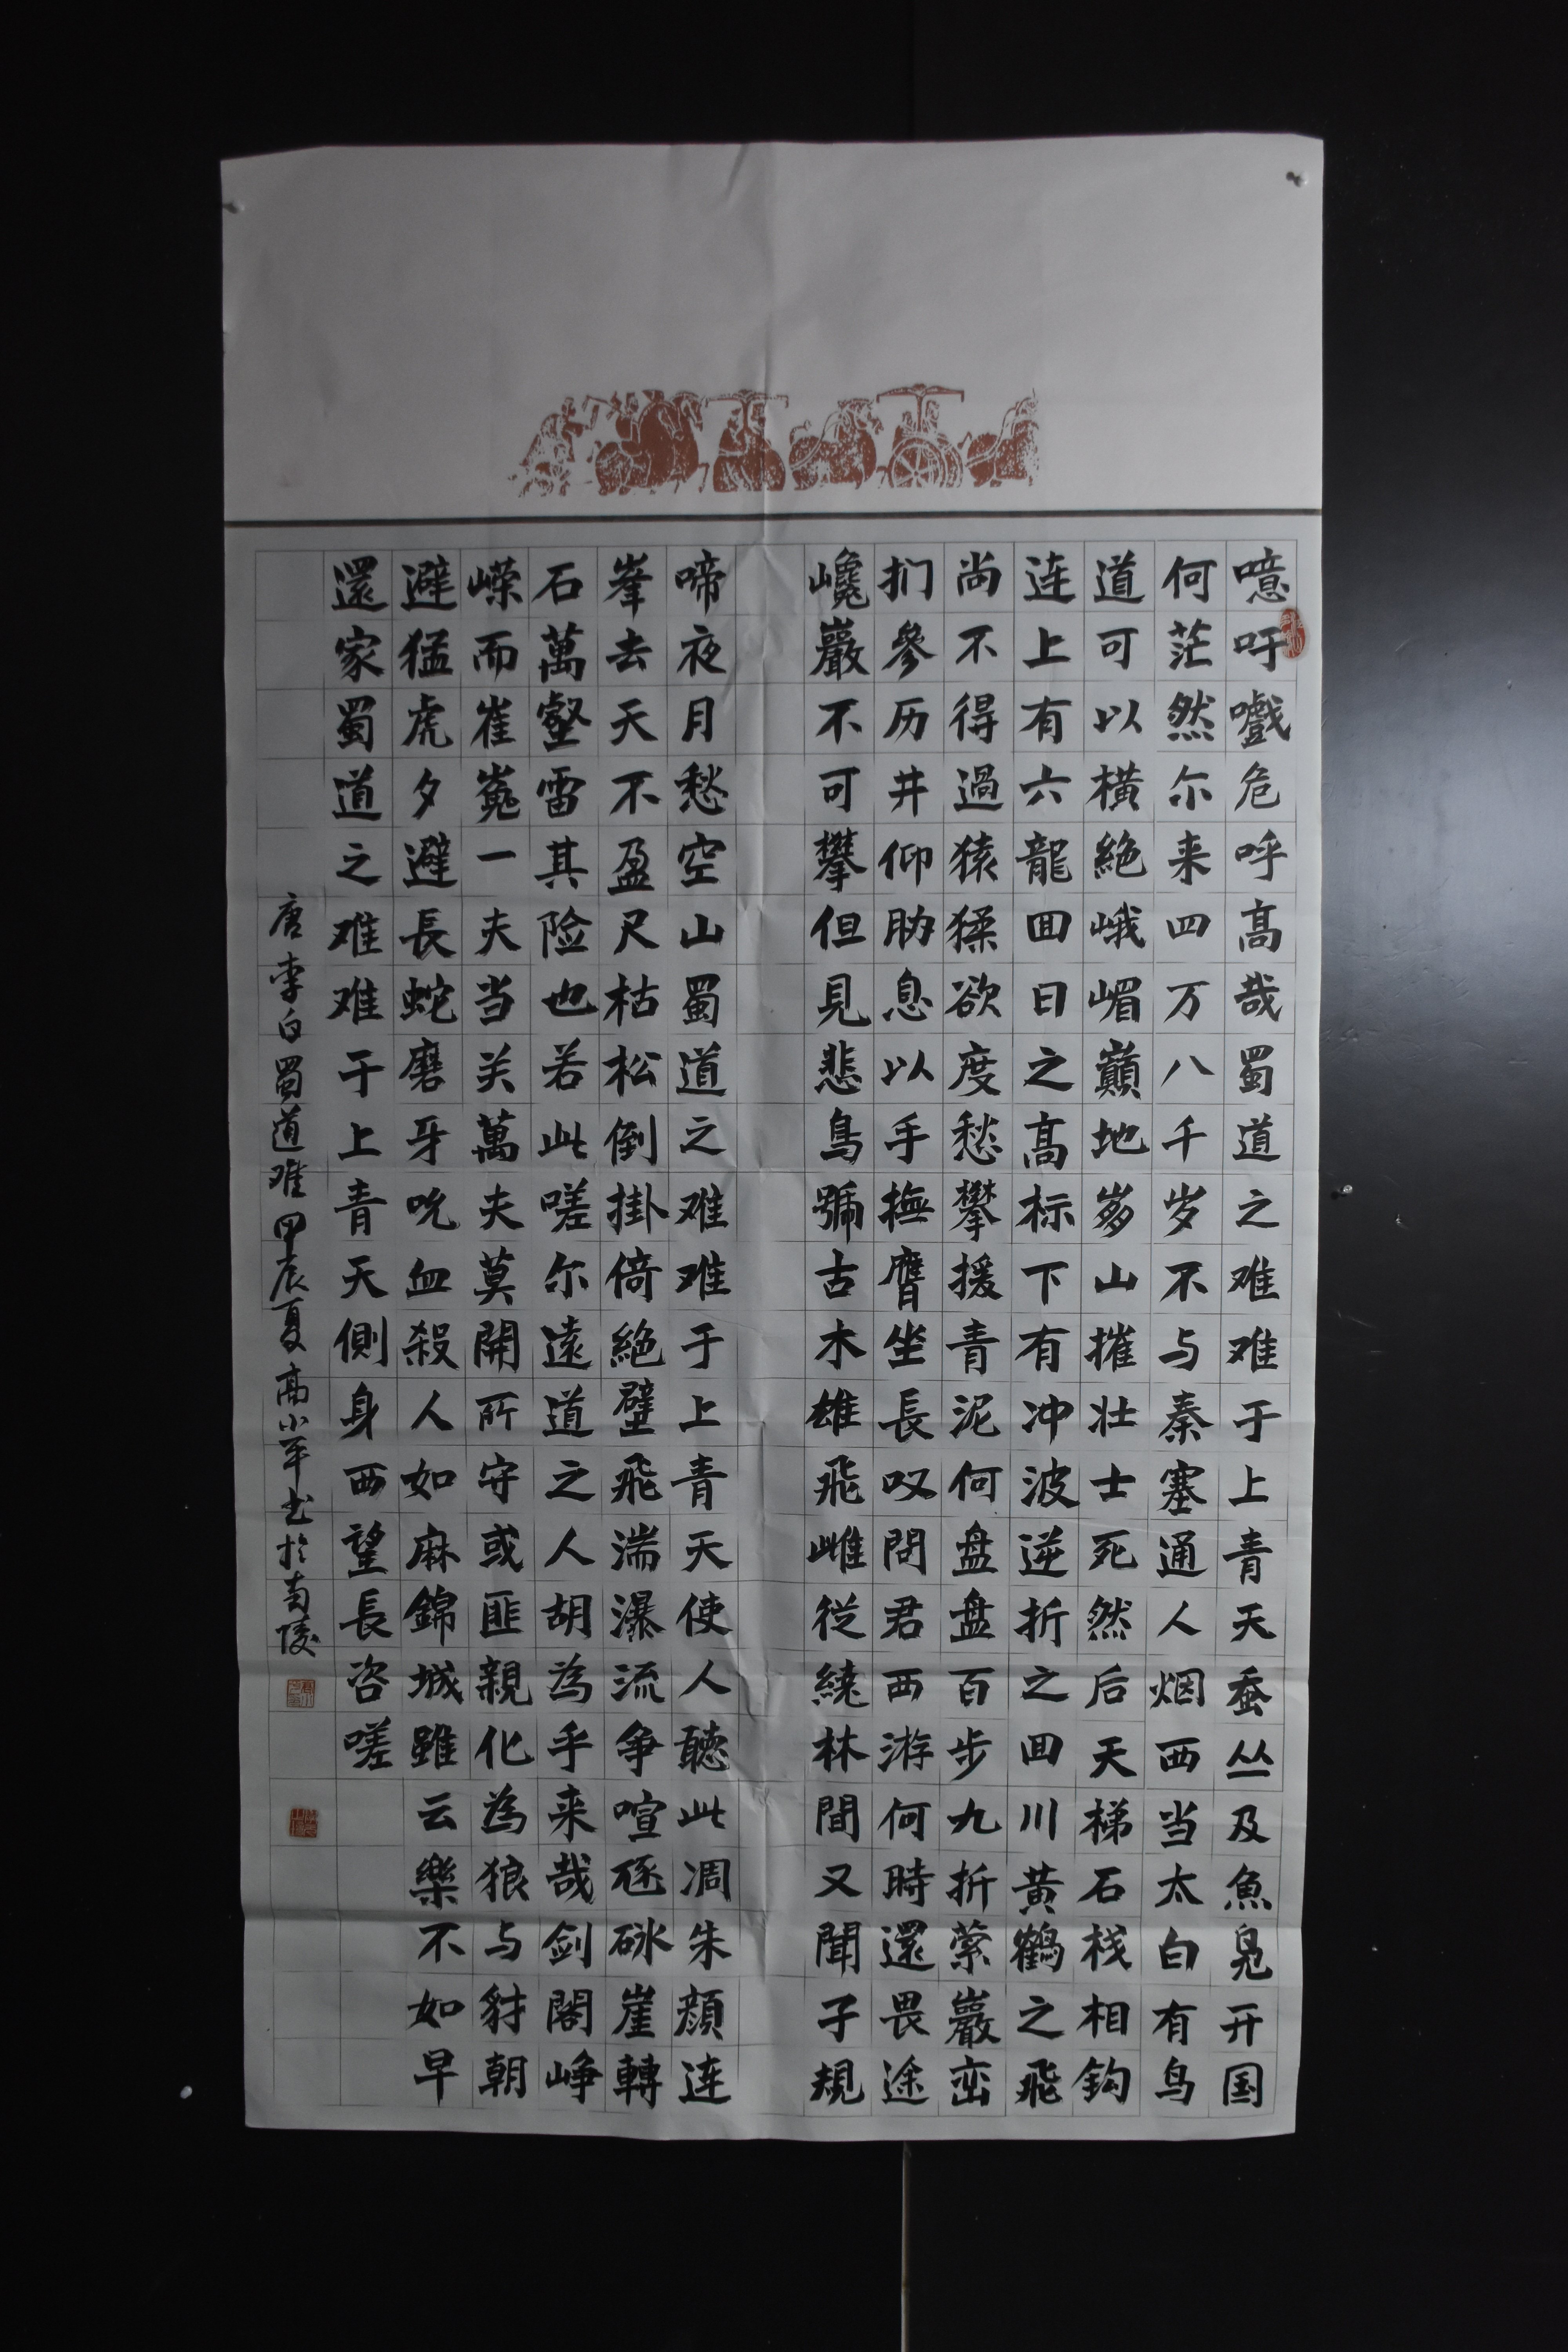 噫吁嚱危呼高哉蜀道之难难于上青天蚕丛及魚鳧开国
何茫然尔来四万八千岁不与秦塞通人烟西当太白有鸟
道可以横絶峨嵋巔地崩山摧壮士死然后天梯石栈相钩
连上有六龍回日之高标下有冲波逆折之回川黄鹤之飛
尚不得過猿猱欲度愁攀援青泥何盘盘百步九折萦巖峦
扪參历井仰胁息以手撫膺坐長叹問君西游何時還畏途
巉巖不可攀但見悲鳥號古木雄飛雌従繞林間又聞子規
啼夜月愁空山蜀道之难难于上青天使人聽此凋朱颜连
峯去天不盈尺枯松倒掛倚絶壁飛湍瀑流争喧豗砯崖轉
石萬壑雷其险也若此嗟尔遠道之人胡為乎来哉剑閣峥
嵘而崔嵬一夫当关萬夫莫開所守或匪親化為狼与豺朝
避猛虎夕避長蛇磨牙吮血殺人如麻錦城雖云樂不如早
還家蜀道之难难于上青天側身西望長咨嗟
唐李白蜀道难甲辰夏高小平书於南陵